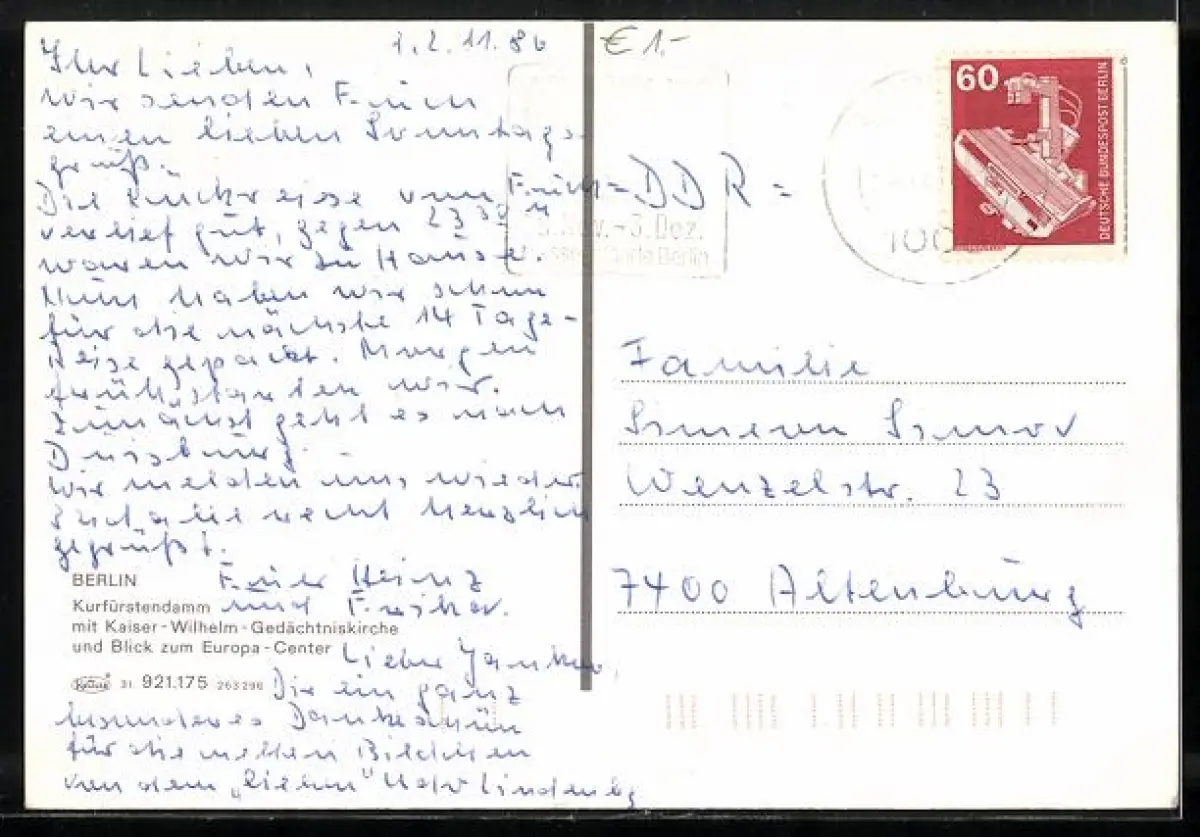 € 1.-
11.86
Ihr Lieben,
wir senden Euch
einen lieben Sonntags-
gruß.
Die Rückreise von Euch
verlief gut, gegen 23 30 h
waren wir zu Hause.
Nun haben wir schon
für die nächste 14 Tage-
Reise gepackt. Morgen
früh starten wir.
Zunächst geht es nach
Duisburg.
Wir melden uns wieder.
Seid alle recht herzlich
gegrüßt.
Euer Heinz
und
BERLIN
Kurfürstendamm
mit Kaiser-Wilhelm-Gedächtniskirche
und Blick zum Europa-Center
Krüger 31 921.175 263296
Lieber
Dir ein ganz
besonderes Dankeschön
für die netten Bildchen
von dem „lieben" Udo Lindenbg
=DDR=
.-3. Dez.
Berlin
100
60
DEUTSCHE BUNDESPOST BERLIN
Familie
Simeon Simov
Wenzelstr. 23
7400 Altenburg